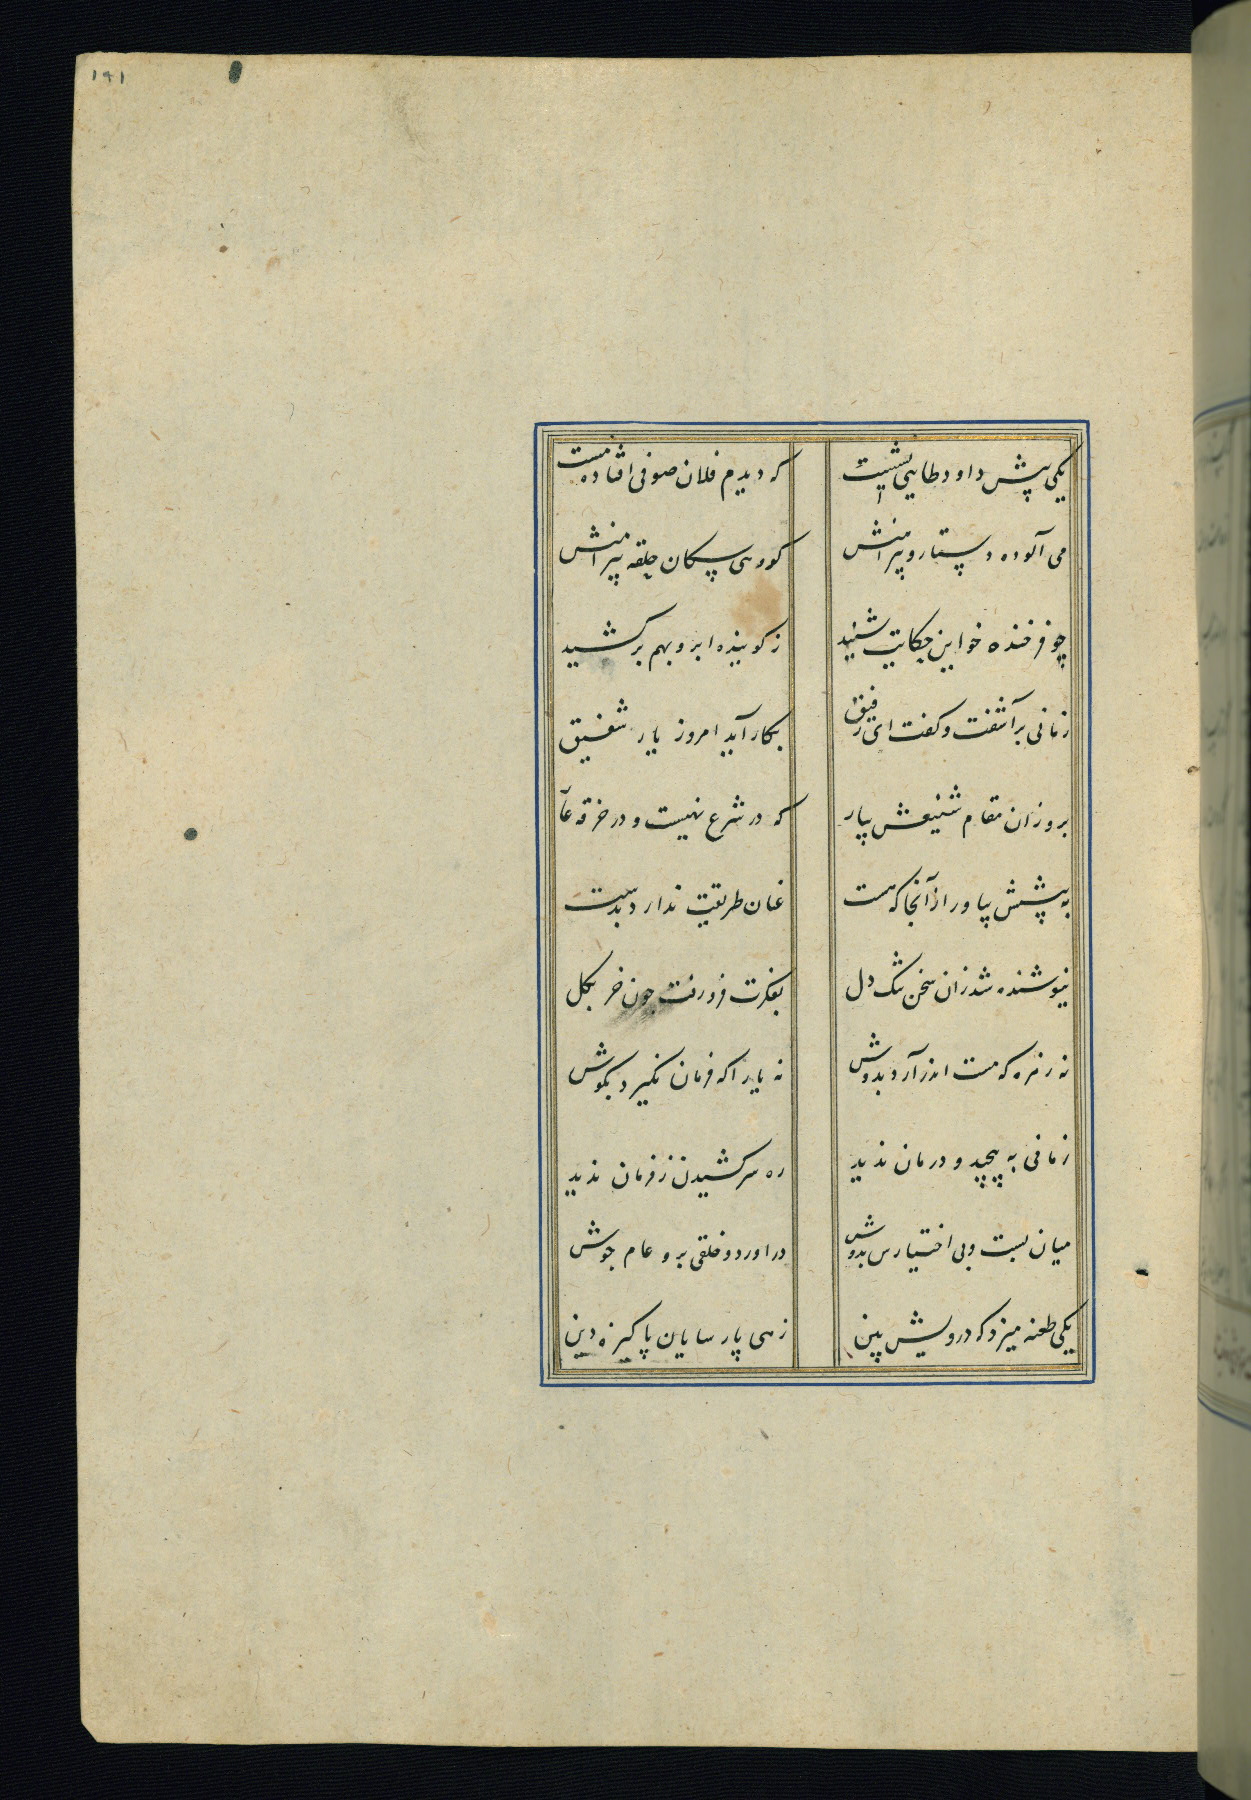 ۱۹۱
یکی پیش داود طایی نشست
که دیدم فلان صوفی افتاده مست
می آلوده دستار و پیراهنش
کروهی سکان حلقه پیرامنش
چو فرخنده خو این حکایت شنید
ز کوینده ابرو بهم برکشید
زمانی برآشفت و کفت ای رفیق
بکار آید امروز یار شفیق
برو زان مقام شنیعش بیار
که در شرع نهیست و در خرقه عا
به پشتش بیاور از آنجا که هست
عنان طریقت ندارد بدست
نیوشنده شد زان سخن تنک دل
بفکرت فرو رفت چون خر بکل
نه زهره که مست اندر آرد بدوش
نه یارا که فرمان نکیرد بکوش
زمانی به پیچید و درمان ندید
ره سر کشیدن ز فرمان ندید
میان بست و بی اختیارش بدوش
در اورد و خلقی برو عام جوش
یکی طعنه میزد که درویش بین
زهی پارسایان پاکیزه دین